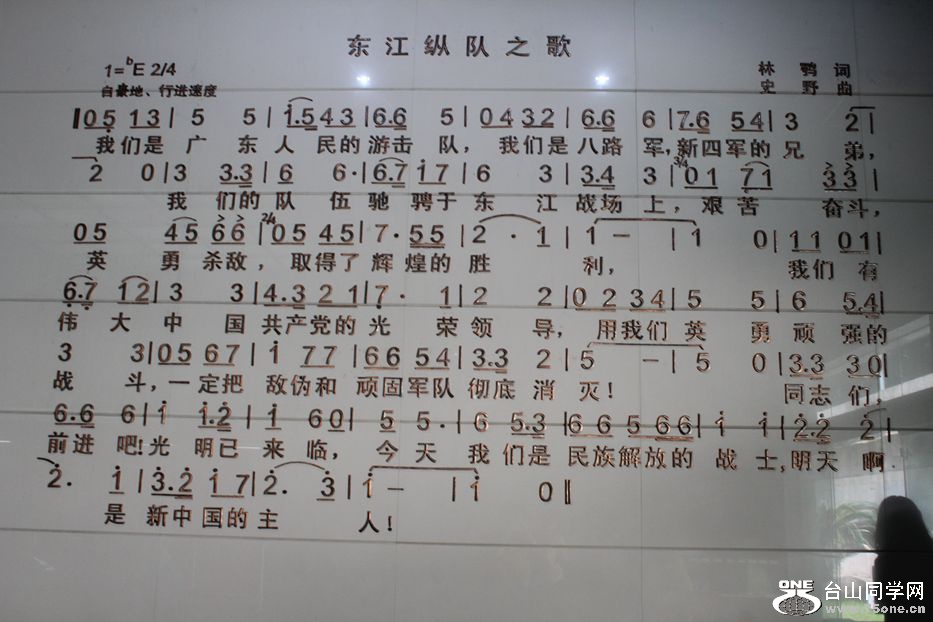 东江纵队之歌
1=ᵇE 2/4
自豪地、行进速度
林 鹗 词
史 野 曲
05 13 | 5 5 | 1.5 43 | 6.6 5 | 04 32 | 6.6 6 | 7.6 54 | 3 2 |
我们是广东人民的游击队，我们是八路军，新四军的兄弟，
2 0 | 3 3.3 | 6 6· | 6.7 17 | 6 3 | 3.4 3 | 3/4 01 71 33 |
我们的队伍驰骋于东江战场上，艰苦奋斗，
05 45 66 | 2/4 05 45 | 7· 55 | 2 · 1 | 1 — | 1 0 | 11 01 |
英勇杀敌，取得了辉煌的胜利，我们有
6.7 12 | 3 3 | 4.3 21 | 7· 1 | 2 2 | 02 34 | 5 5 | 6 5.4 |
伟大中国共产党的光荣领导，用我们英勇顽强的
3 3 | 05 67 | 1 77 | 66 54 | 3.3 2 | 5 — | 5 0 | 3.3 30 |
战斗，一定把敌伪和顽固军队彻底消灭！同志们，
6.6 6 | 1 1.2 | 1 60 | 5 5· | 6 5.3 | 66 5 66 | 1 1 | 2.2 2 |
前进吧！光明已来临，今天我们是民族解放的战士，明天啊
2· 1 | 3.2 17 | 2· 3 | 1 — | 1 0 ‖
是新中国的主人！
ONE 台山同学网